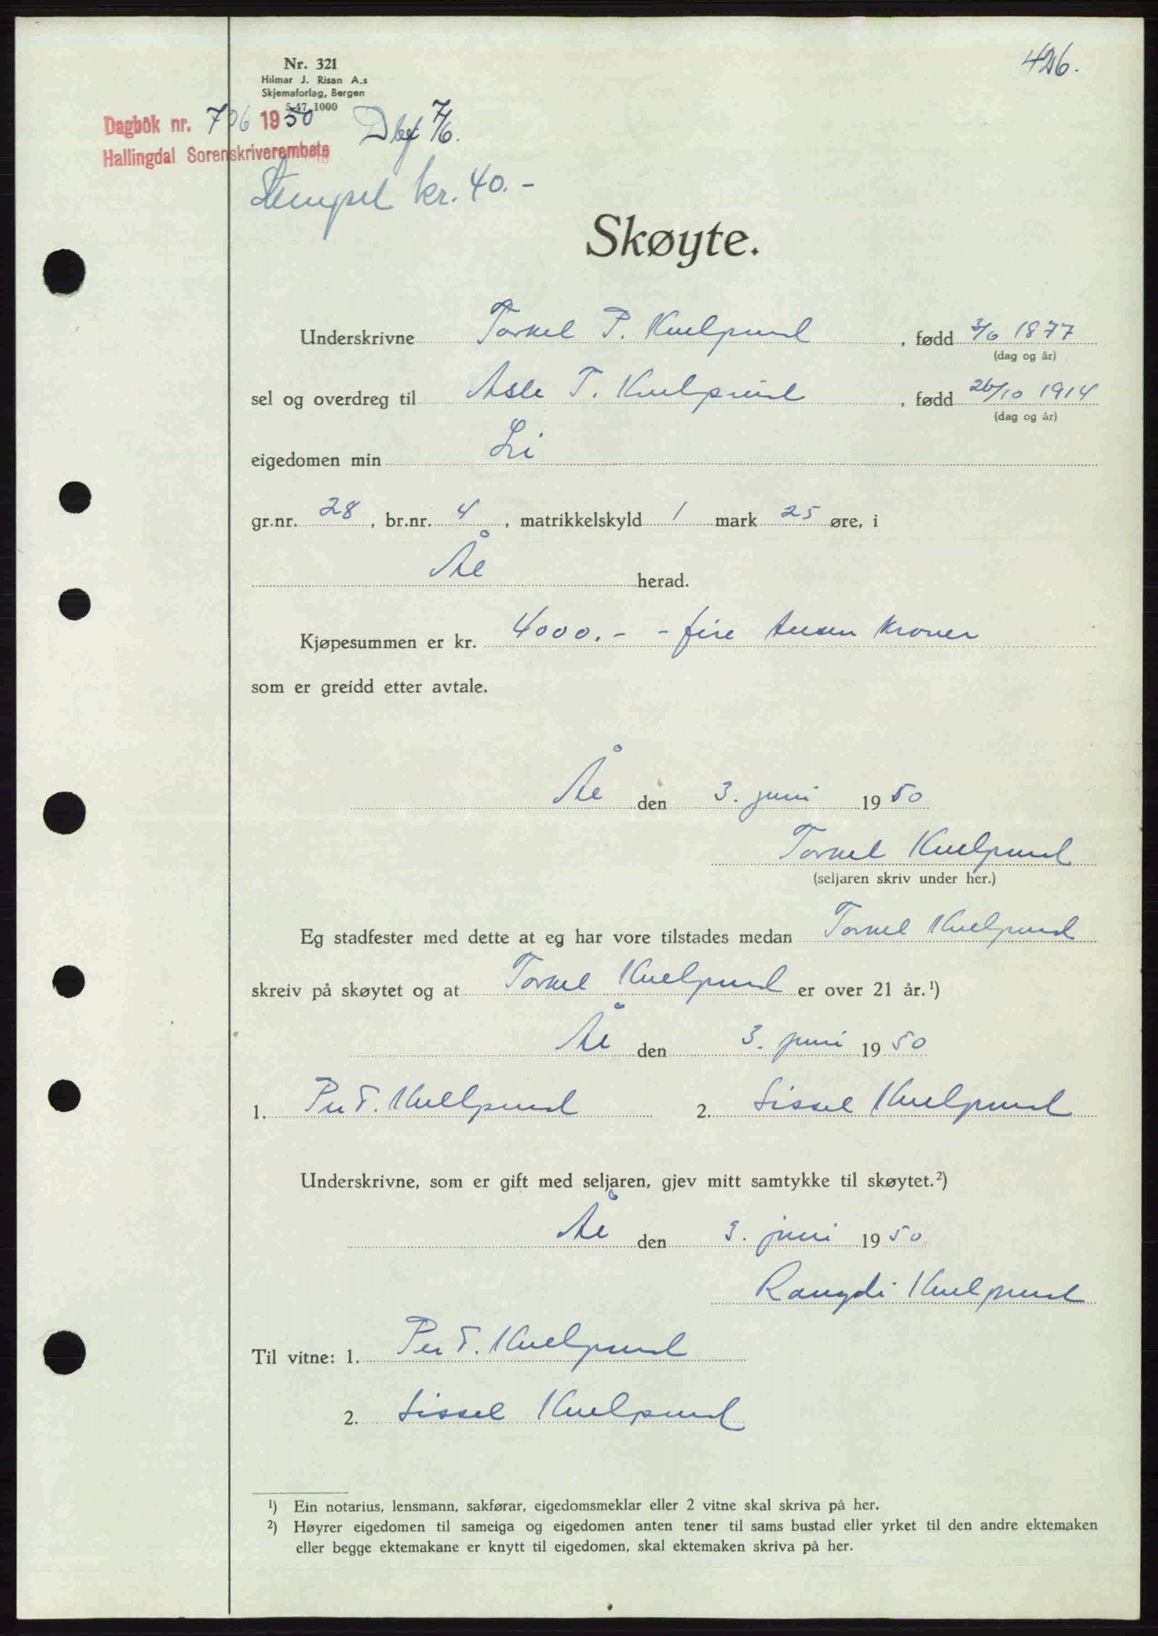 426.
Nr. 321
Hilmar J. Risan A.s
Skjemaforlag, Bergen
5-47. 1000
Dagbok nr. 706 1950
Dbf 7/6.
Hallingdal Sorenskriverembete
Stempel kr. 40.-
Skøyte.
Underskrivne Torkel P. Kvelprud , fødd 3/6 1877
(dag og år)
sel og overdreg til Asle T. Kvelprud , fødd 26/10 1914
(dag og år)
eigedomen min Li
gr.nr. 28 , br.nr. 4 , matrikkelskyld 1 mark 25 øre, i
Ål herad.
Kjøpesummen er kr. 4000.- - fire tusen kroner
som er greidd etter avtale.
Ål den 3. juni 1950
Torkel Kvelprud
(seljaren skriv under her.)
Eg stadfester med dette at eg har vore tilstades medan Torkel Kvelprud
skreiv på skøytet og at Torkel Kvelprud er over 21 år.¹)
Ål den 3. juni 1950
1. Per T. Kvelprud 2. Sissel Kvelprud
Underskrivne, som er gift med seljaren, gjev mitt samtykke til skøytet.²)
Ål den 3. juni 1950
Rangdi Kvelprud
Til vitne: 1. Per T. Kvelprud
2. Sissel Kvelprud
¹) Ein notarius, lensmann, sakførar, eigedomsmeklar eller 2 vitne skal skriva på her.
²) Høyrer eigedomen til sameiga og eigedomen anten tener til sams bustad eller yrket til den andre ektemaken
eller begge ektemakane er knytt til eigedomen, skal ektemaken skriva på her.